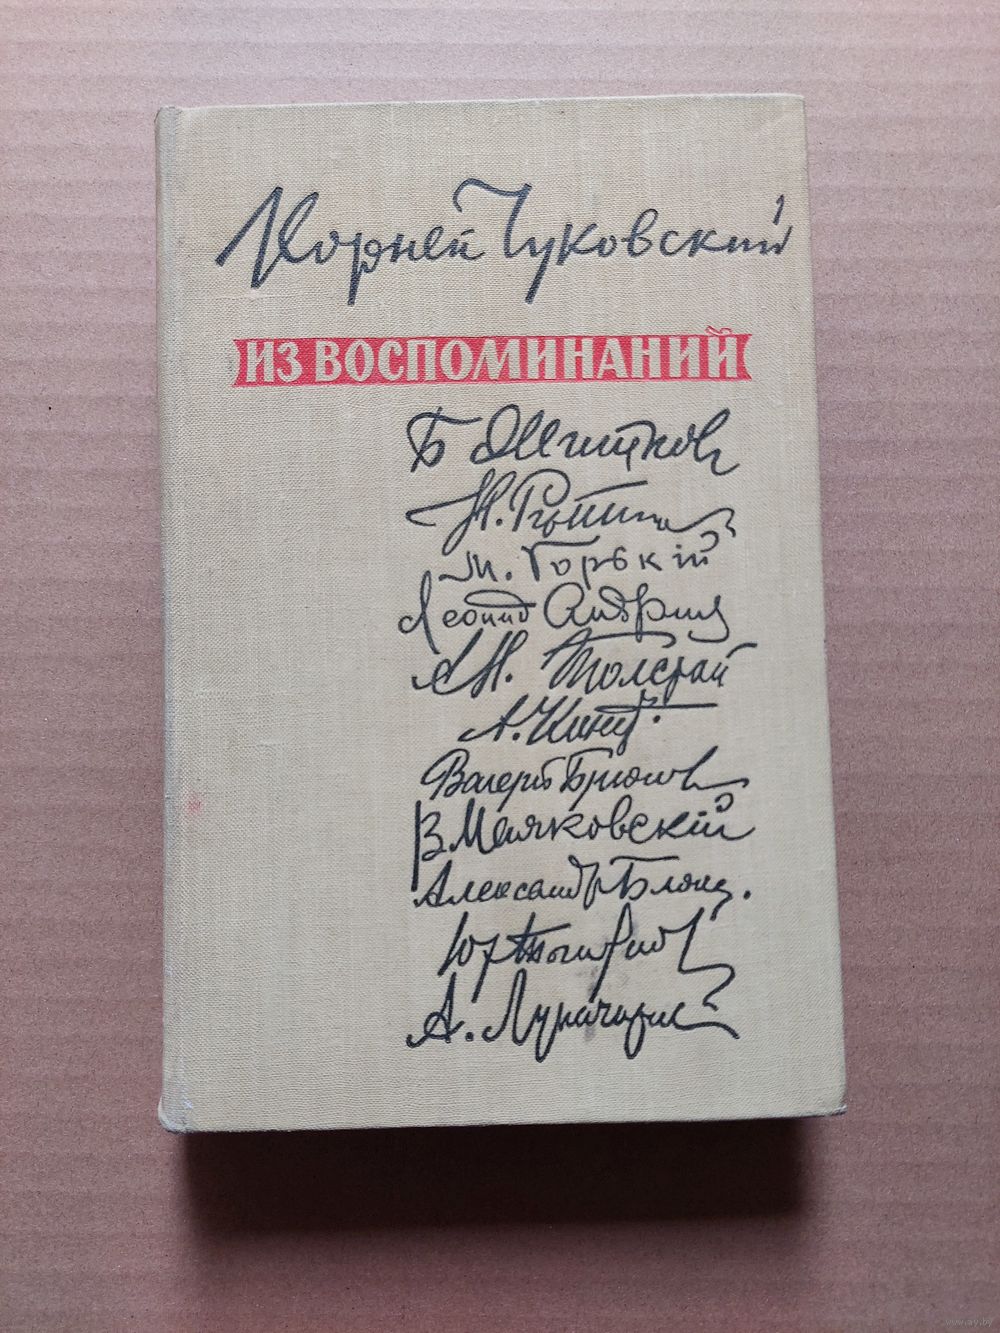 Корней Чуковский
ИЗ ВОСПОМИНАНИЙ
Б Житков
И. Репин
М. Горькій
Леонид Андреев
А.Н. Толстой
А. Куприн
Валерій Брюсов
В. Маяковскій
Александръ Блокъ.
Юр Тынянов
А. Луначарск
www.ay.by